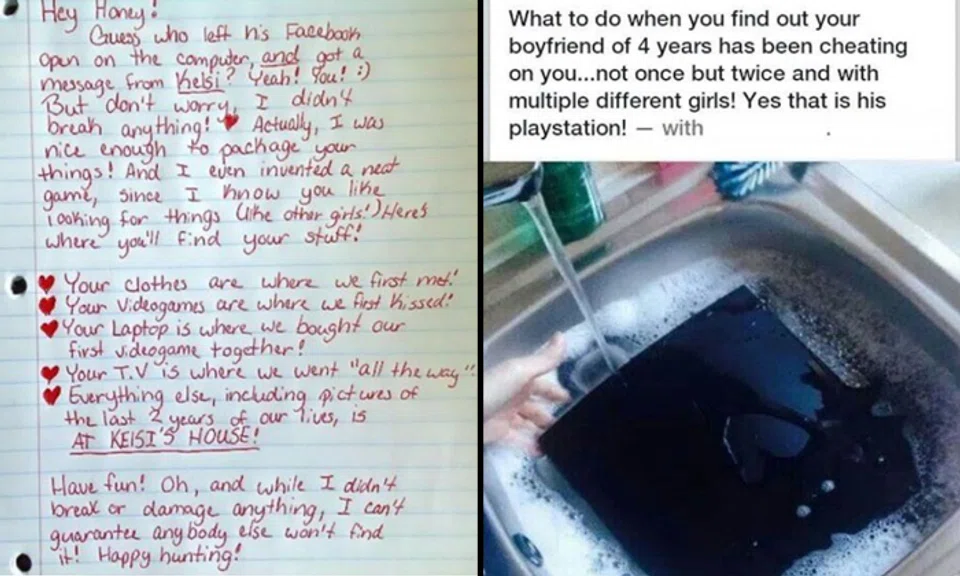 Hey Honey!
Guess who left his Facebook
open on the computer, and got a
message from Kelsi? Yeah! You! :)
But don't worry, I didn't
break anything! ♥ Actually, I was
nice enough to package your
things! And I even invented a neat
game, since I know you like
looking for things (like other girls!) Here's
where you'll find your stuff!
♥ Your clothes are where we first met!
♥ Your videogames are where we first kissed!
♥ Your Laptop is where we bought our
first videogame together!
♥ Your T.V is where we went "all the way"!
♥ Everything else, including pictures of
the last 2 years of our lives, is
AT KElSI'S HOUSE!
Have fun! Oh, and while I didn't
break or damage anything, I can't
guarantee anybody else won't find
it! Happy hunting!
What to do when you find out your
boyfriend of 4 years has been cheating
on you...not once but twice and with
multiple different girls! Yes that is his
playstation! — with .